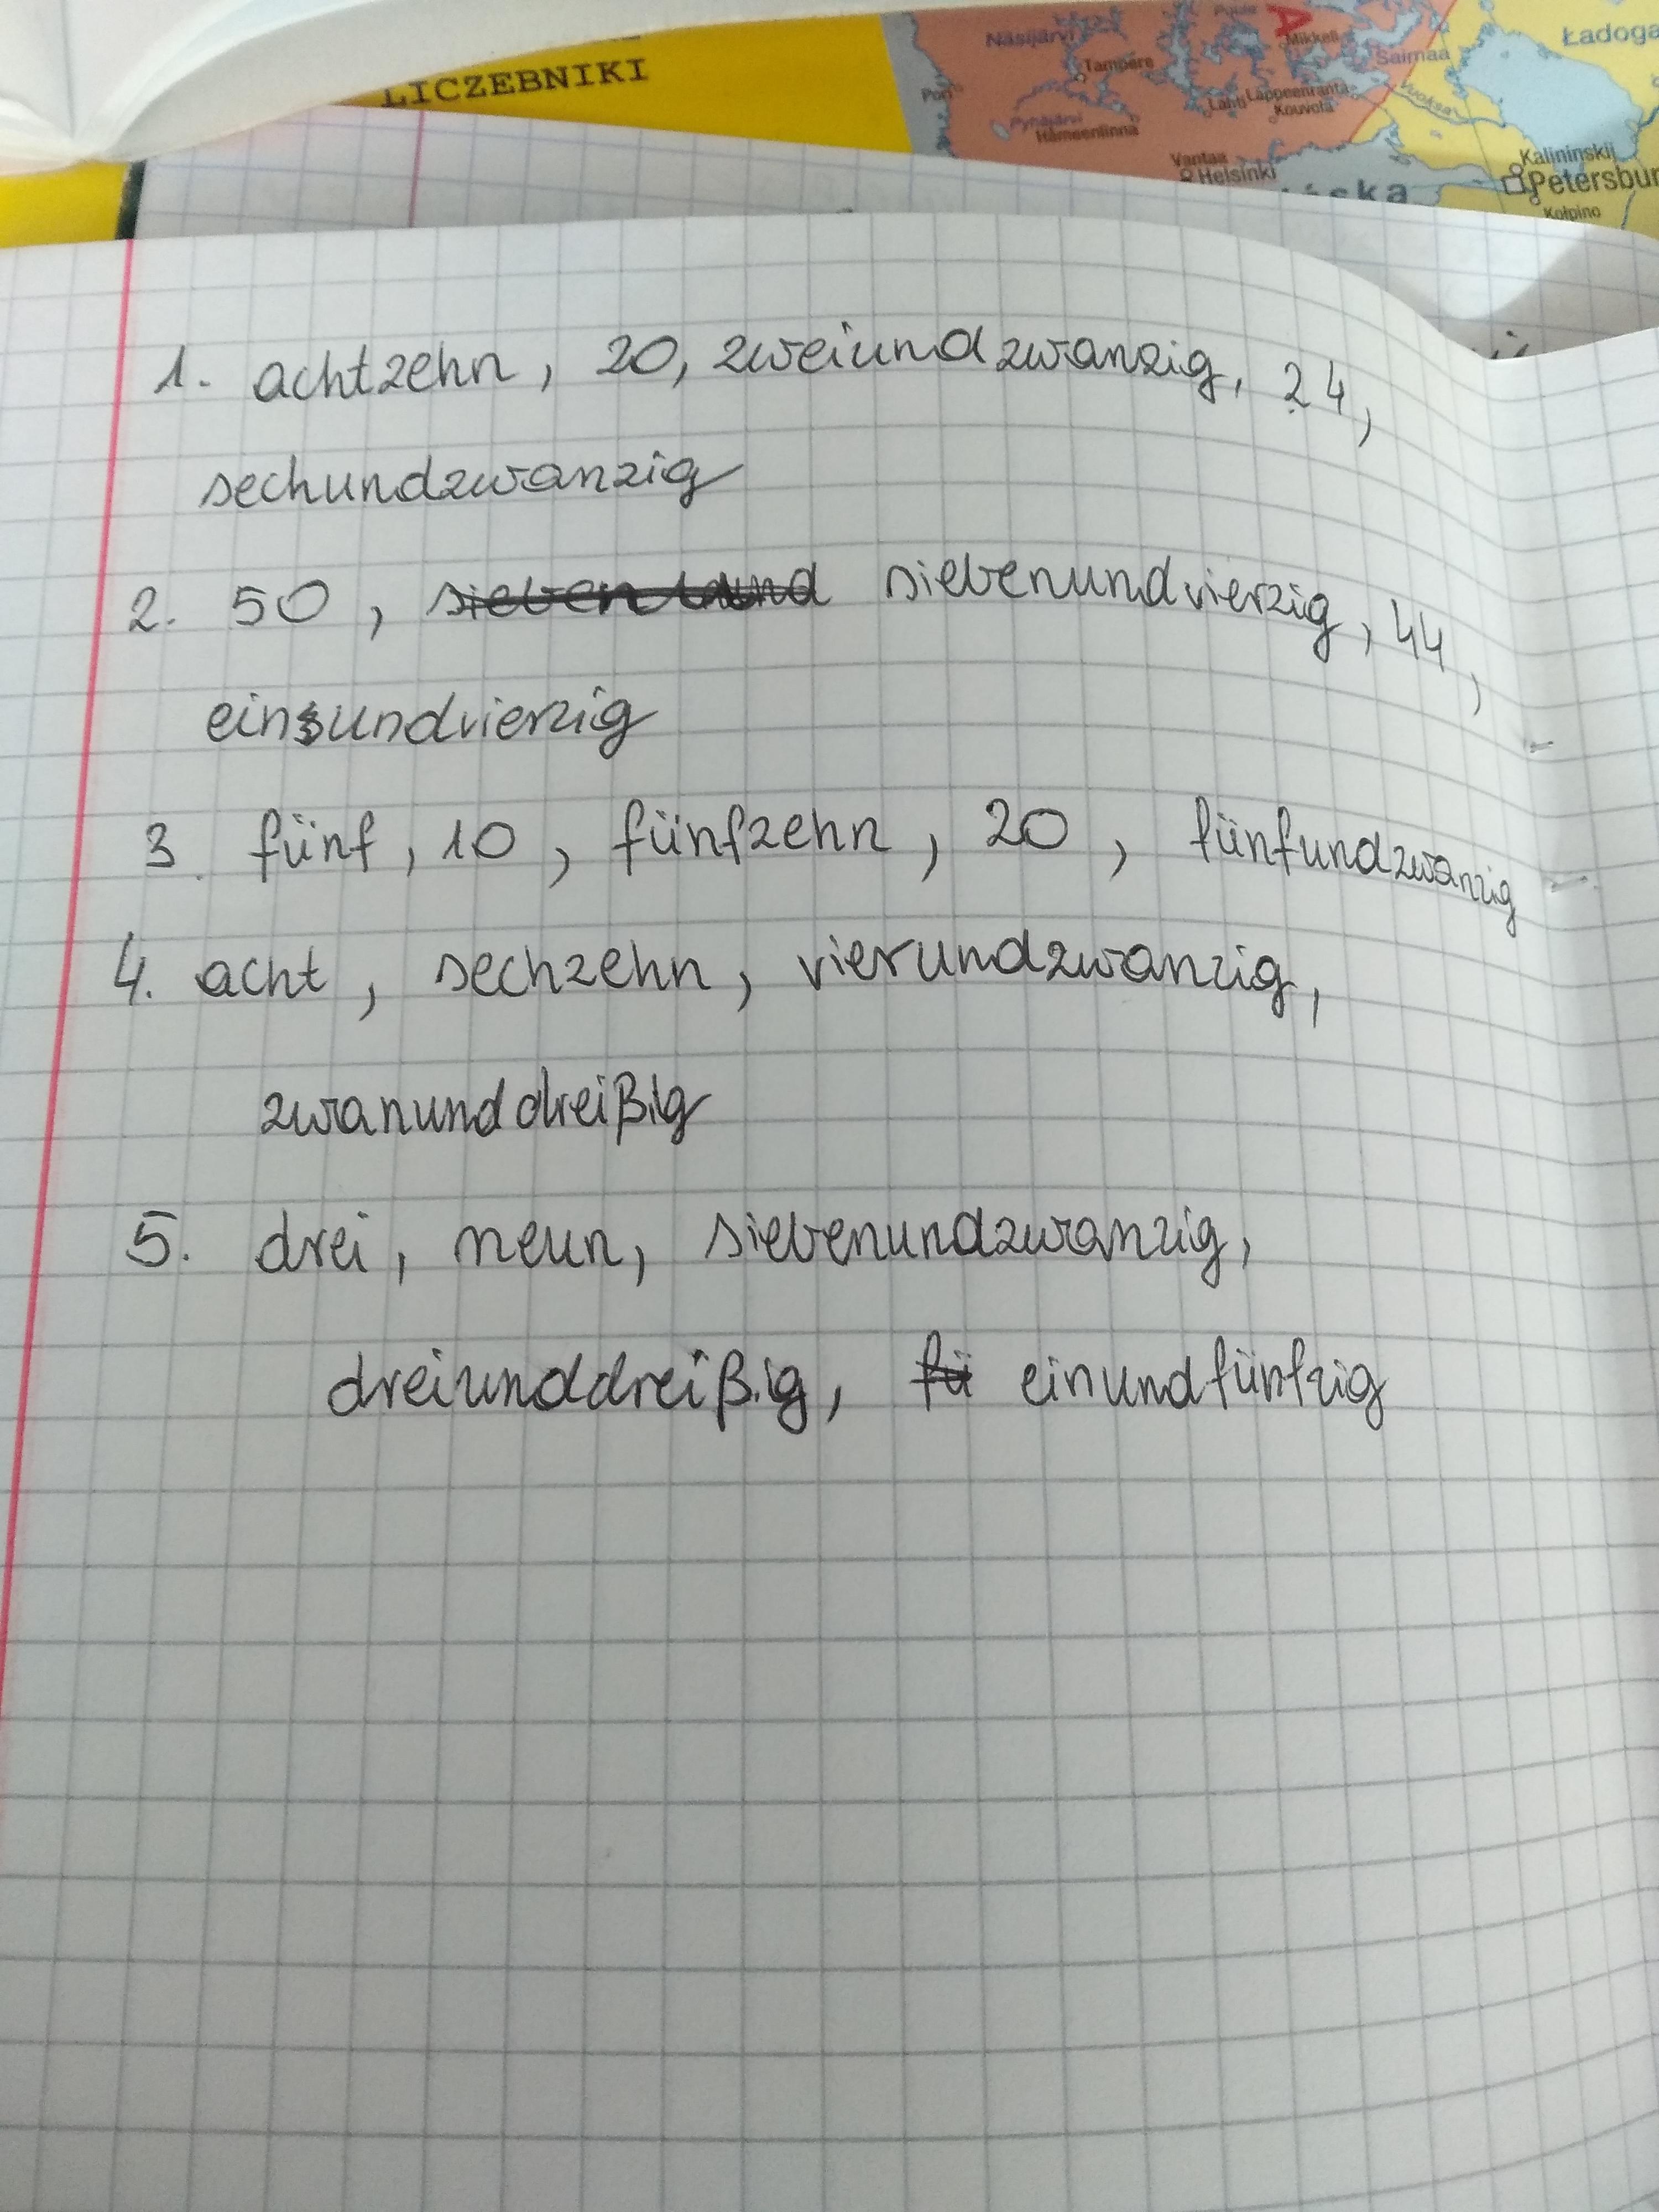 LICZEBNIKI
Näsijärvi
Tampere
Pori
Pyhäjärvi
Hämeenlinna
Mikkeli
Saimaa
Lahti
Lappeenranta
Kouvola
Vuoksa
Ładoga
Vantaa
Helsinki
Kalininskij
Petersbur
Kołpino
áska
1. achtzehn, 20, zweiundzwanzig, 24,
sechundzwanzig
2. 50, siebenundvierzig, 44,
einsundvierzig
3. fünf, 10, fünfzehn, 20, fünfundzwanzig
4. acht, sechzehn, vierundzwanzig,
zwanunddreißig
5. drei, neun, siebenundzwanzig,
dreiunddreißig, fü einundfünfzig